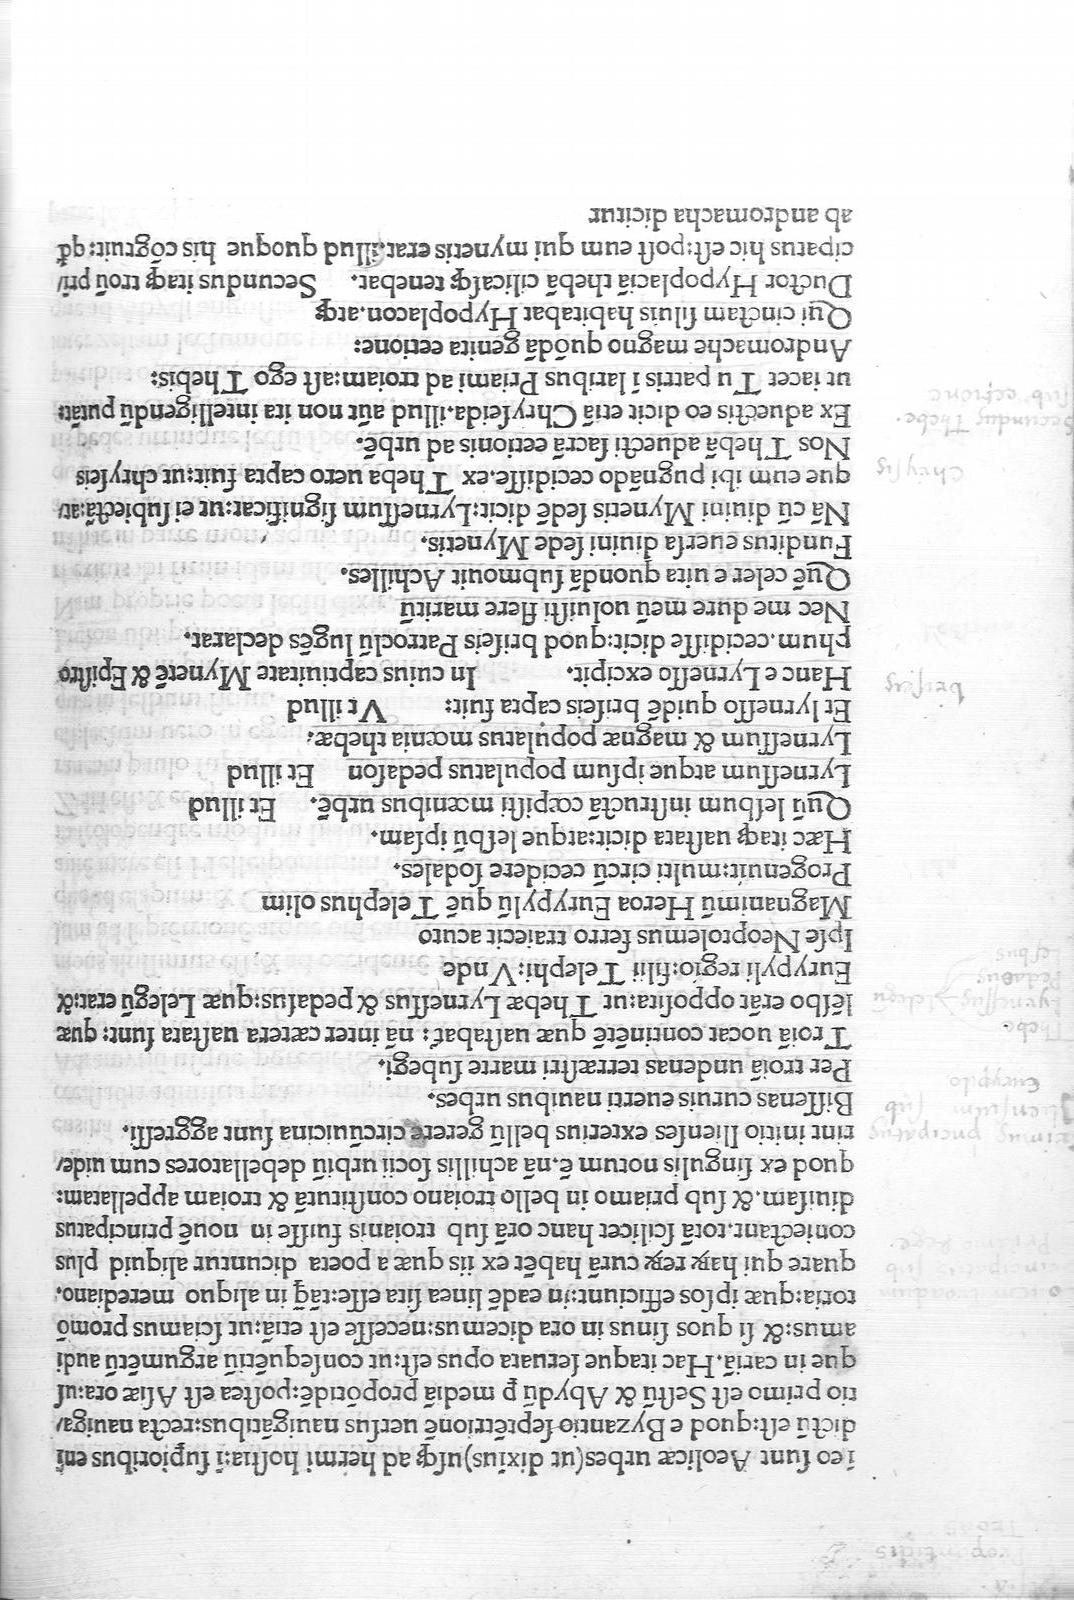 ĩ eo sunt Aeolicæ urbes(ut diximus)usq; ad hermi hostia:ĩ supioribus em̃
dictũ est:quod e Byzantio septẽtrionẽ uersus nauigãtibus:recta nauiga/
tio primo est Sestũ & Abydũ p mediã propõtidẽ:postea est Asiæ ora:us
que in cariã. Hac itaque seruata opus est:ut consequẽtiũ argumẽtũ audi
amus:& si quos sinus in ora dicemus:necesse est etiã:ut sciamus promõ
toria:quæ ipsos efficiunt:in eadẽ linea sita esse:tãq̃ in aliquo meridiano.
quare qui haꝝ reꝝ curã habẽt ex iis quæ a poeta dicuntur aliquid plus
coniectant. totã scilicet hanc orã sub troianis fuisse in nouẽ principatus
diuisam. & sub priamo in bello troiano constitutã & troiam appellatam:
quod ex singulis notum ẽ. nã achillis socii urbiũ debellatores cum uide/
rint initio Ilienses exterius bellũ gerere circũuicina sunt aggressi.
Bissenas curuis euerti nauibus urbes.
Per troiã undenas terræstri marte subegi.
Troiã uocat continẽtẽ quæ uastabat̃: nã inter cætera uastata sunt: quæ
lesbo erãt opposita:ut Thebæ Lyrnessus & pedasus:quæ Lelegũ erat:&
Eurypyli regio:filii Telephi:Vnde
Ipse Neoptolemus ferro traiecit acuto
Magnanimũ Heroa Eurypylũ quẽ Telephus olim
Progenuit:multi circũ cecidere sodales.
Hæc itaq; uastata dicit:atque lesbũ ipsam.
Quũ lesbum instructã cœpisti mœnibus urbẽ. Et illud
Lyrnessum atque ipsum populatus pedason Et illud
Lyrnessum & magnæ populatus mœnia thebæ.
Et lyrnesso quidẽ briseis capta fuit: Vt illud
Hanc e Lyrnesso excipit. In cuius captiuitate Mynetẽ & Epistro
phum. cecidisse dicit:quod briseis Patroclũ lugẽs declarat.
Nec me dure meũ uoluisti flere maritũ
Quẽ celer e uita quondã submouit Achilles.
Funditus euersa diuini sede Mynetis.
Nã cũ diuini Mynetis sedẽ dicit:Lyrnessum significat:ut ei subiectã:at
que eum ibi pugnãdo cecidisse. ex Theba uero capta fuit:ut chryseis
Nos Thebã aduecti sacrã eetionis ad urbẽ.
Ex aduectis eo dicit etiã Chryseida. illud aũt non ita intelligendũ putãt:
ut iacet Tu patris ĩ laribus Priami ad troiam:ast ego Thebis:
Andromache magno quõdã genita eetione:
Qui cinctam siluis habitabat Hypoplacon.atq;
Ductor Hypoplaciã thebã cilicasq; tenebat. Secundus itaq; troũ prĩ/
cipatus hic est:post eum qui mynetis erat. illud quoque his cõgruit:qd̃
ab andromacha dicitur
Eurypylo
Thebe.
Lyrnessus
Pedasus
Lesbus
briseis
Chryseis
Secundus Thebe.
sub eetione